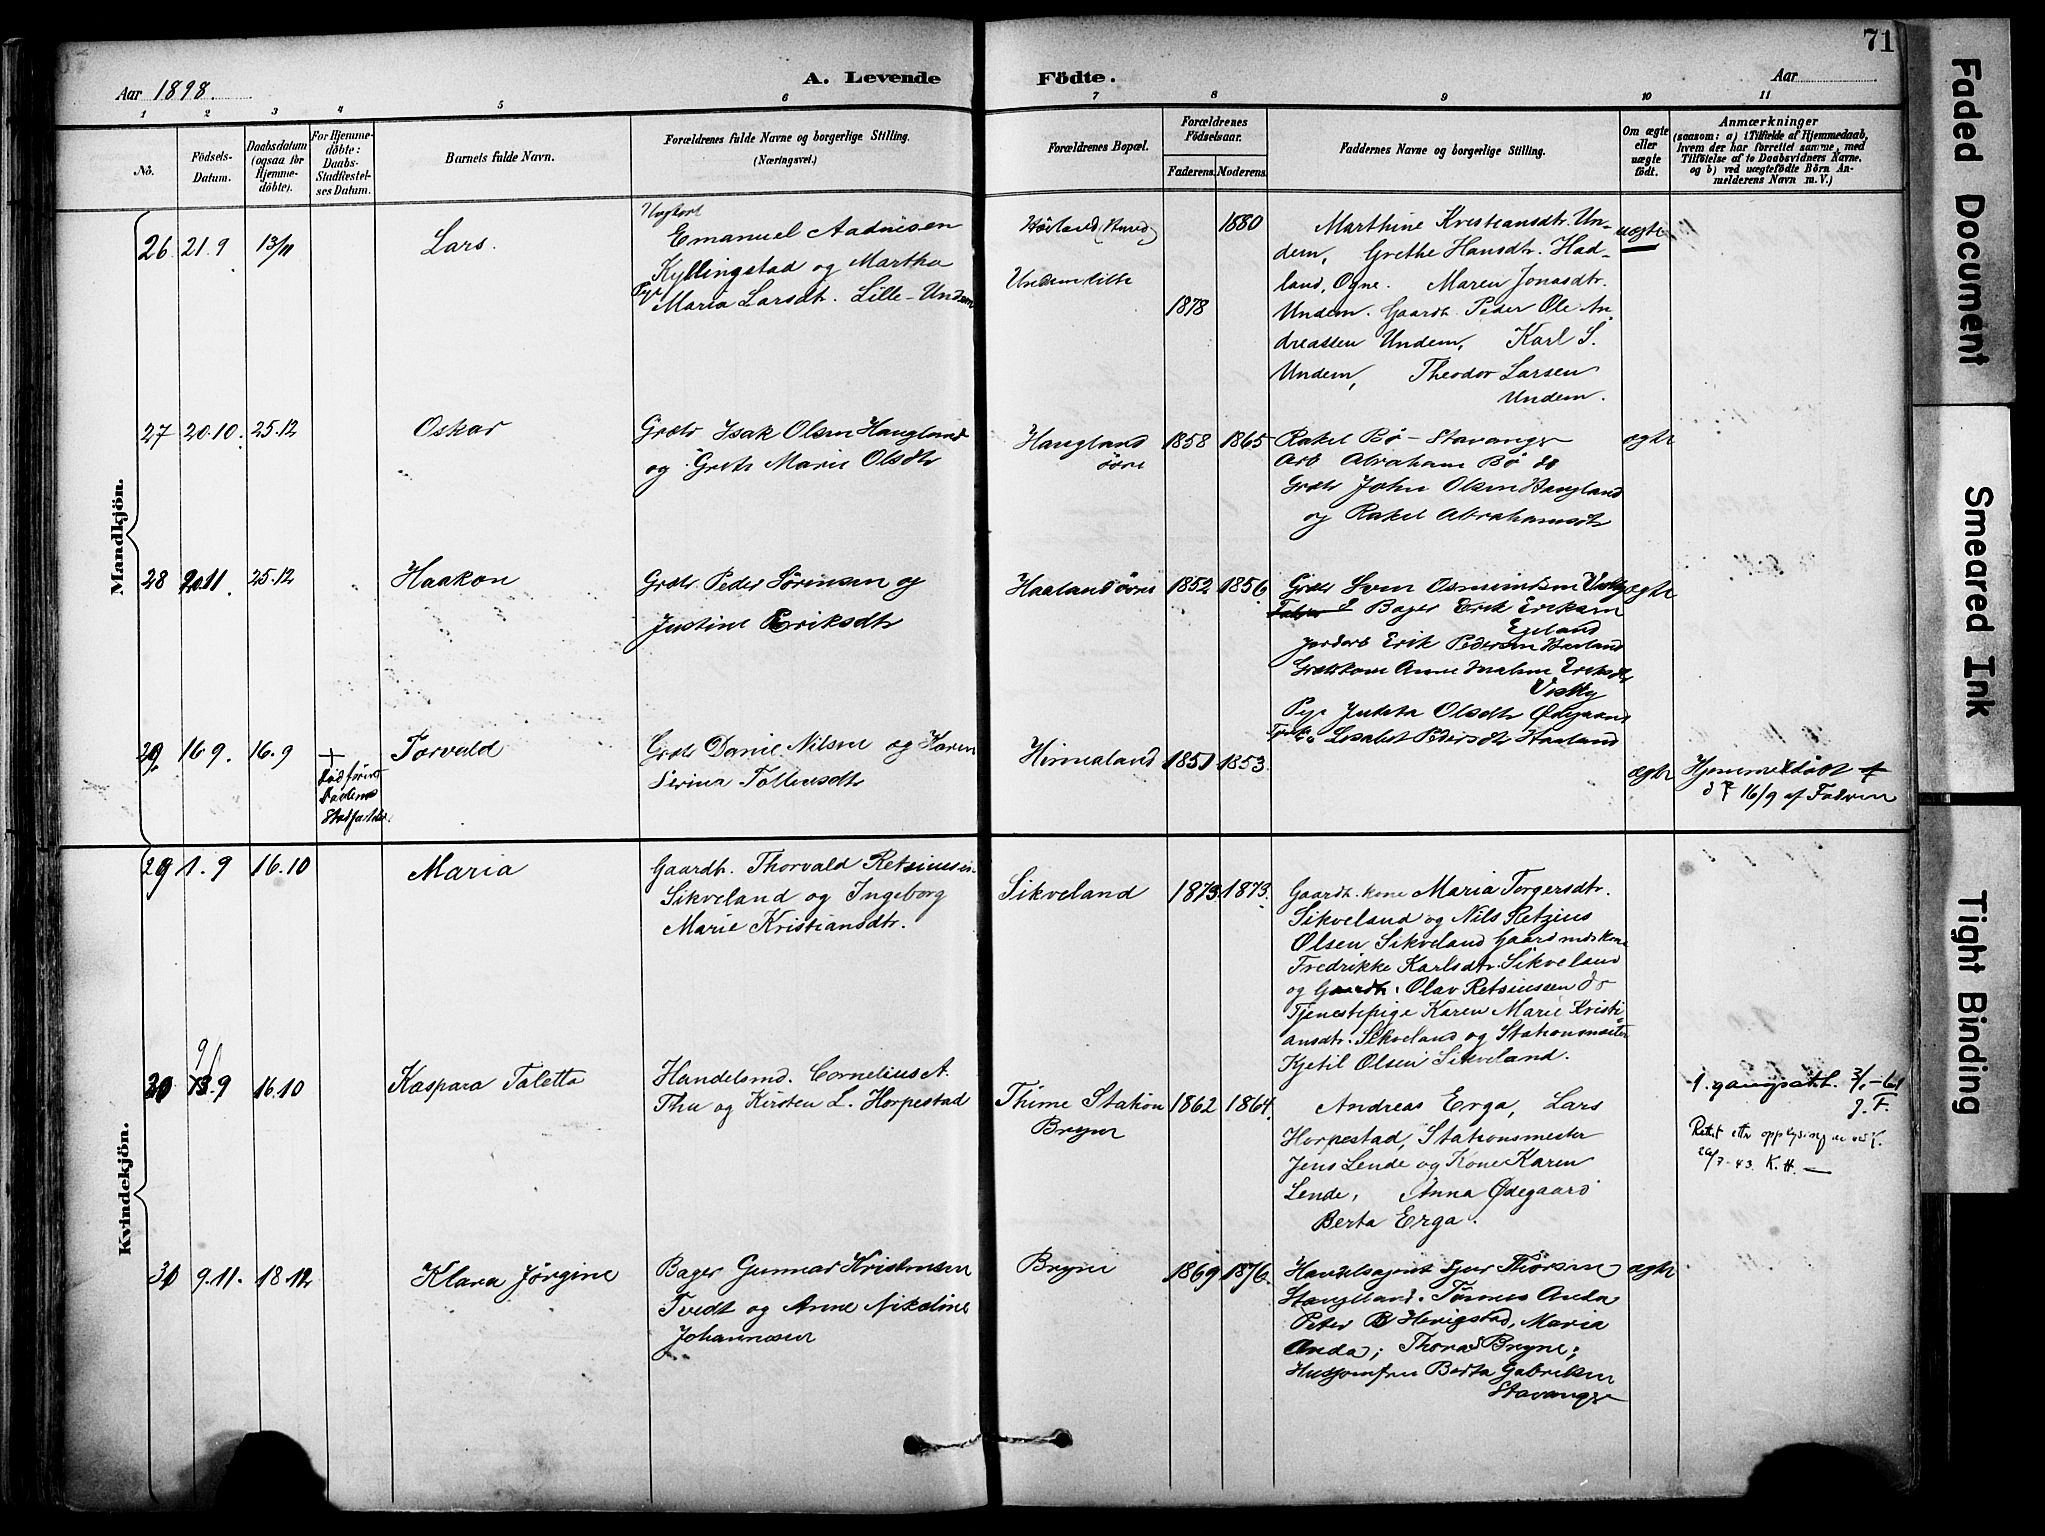 71
Aar 1898.
A. Levende Födte.
Aar
1 2 3 4 5 6 7 8 9 10 11
No.
Födsels-
Datum.
Daabsdatum
(ogsaa for
Hjemme-
döbte).
For Hjemme-
döbte:
Daabs-
Stadfæstel-
ses Datum.
Barnets fulde Navn.
Forældrenes fulde Navne og borgerlige Stilling.
(Næringsvei.)
Forældrenes Bopæl.
Forældrenes
Födselsaar.
Faderens. Moderens.
Faddernes Navne og borgerlige Stilling.
Om ægte
eller
uægte
födt.
Anmærkninger
(saasom: a) i Tilfælde af Hjemmedaab,
hvem der har forrettet samme, med
Tilföielse af to Daabsvidners Navne,
og b) ved uægtefödte Börn An-
melderens Navn m. V.)
Mandkjön.
26 21.9 13/11 Lars.
Ungkarl
Emanuel Aadnesen
Kyllingstad og Martha
Pige Maria Larsdt. Lille-Undem
Undem lille
1880
1878
Marthine Kristiansdtr. Un-
dem, Grethe Hansdtr. Had-
land, Ogne. Maren Jonasdtr.
Undem. Gaardb. Peder Ole An-
dreassen Undem, Karl S.
Undem, Theodor Larsen
Undem.
uægte
27 20.10. 25.12 Oskar
Grdbr Isak Olsen Haugland
og Grete Marie Olsdtr
Haugland
övre
1858 1865
Rakel Bø - Stavanger
Arb Abraham Bø do
Grdbr John Olsen Haugland
og Rakel Abrahamsdtr
ægte
28 20.11 25.12 Haakon
Grdbr. Peder Sörensen og
Justine Eriksdtr
Haaland övre 1852 1856
Grdbr Sven Osmundsen
Bager Erik Eriksen
Egeland
Jordarb Erik Pedersen Haaland
Grdbrkone Anne Eriksdtr
Pige Jutta Olsdtr Ødegaard
Lisabet Pedersdtr Haaland
ægte
29. 16 9. 16.9
Död förend
Daadens
Stadfæstelse
Torvald
Grdbr Daniel Nilsen og Karen
Serina Tollensdtr
Hinnaland 1851 1853.
ægte
Hjemmedöbt
d 16/9 af Faderen
Kvindekjön.
29 1.9 16.10 Maria
Gaardb. Thorvald Retsiussen
Sikveland og Ingeborg
Marie Kristiansdtr.
Sikveland 1873 1873.
Gaardb. kone Maria Torgersdtr.
Sikveland og Nils Retzius
Olsen Sikveland Gaardmdskone
Fredrikke Karlsdtr. Sikveland
og Gaardb. Olav Retsiussen do
Tjenestepige Karen Marie Kristi-
ansdtr. Sikveland og Stationsmester
Kjetil Olsen Sikveland.
30 9/9 16.10 Kaspara Taletta
Handelsmd. Cornelius A.
Thu og Kirsten L. Horpestad
Thime Station
Bryne
1862 1864.
Andreas Erga, Lars
Horpestad, Stationsmester
Jens Lende og Kone Karen
Lende, Anna Ødegaard
Berta Erga.
1. gangsatt. 3/1-61
J. F.
Rettet etter opplysning
20/7-43. K. H.
31 9.11. 18.12 Klara Jørgine
Bager Gunnar Kristensen
Tvedt og Anne Nikoline
Johannesen
Bryne 1869 1876.
Handelsagent Sjur Thörsen
Stangeland. Tönnes Anda
Peter B Hervigstad, Maria
Anda; Thora Bryne;
Husjomfru Berta Gabrielsen
Stavanger
ægte
Faded Document
Smeared Ink
Tight Binding